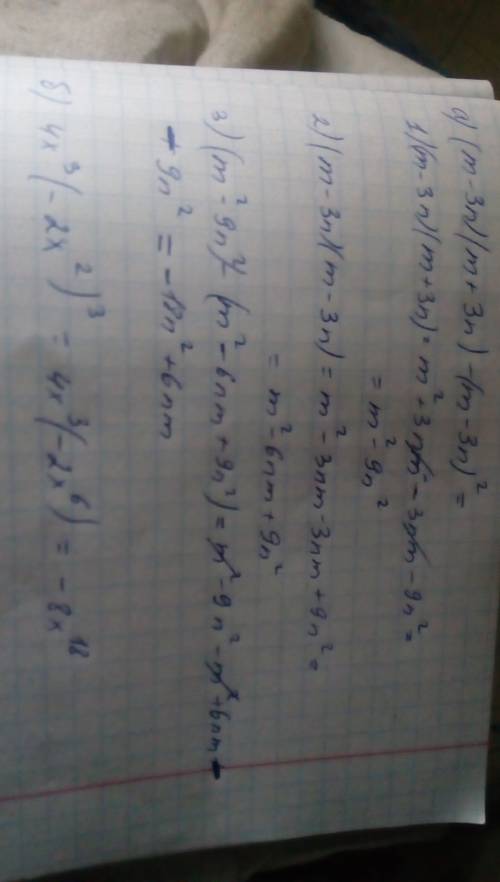 а) (m-3n)(m+3n)-(m-3n)²=
1)(m-3n)(m+3n)=m²+3nm-3nm-9n²=
=m²-9n²
2)(m-3n)(m-3n)=m²-3nm-3nm+9n²=
=m²-6nm+9n²
3)(m²-9n²)-(m²-6nm+9n²)=m²-9n²-m²+6nm-
-9n²=-18n²+6nm
б) 4x³(-2x²)³=4x³(-2x⁶)=-8x¹⁸